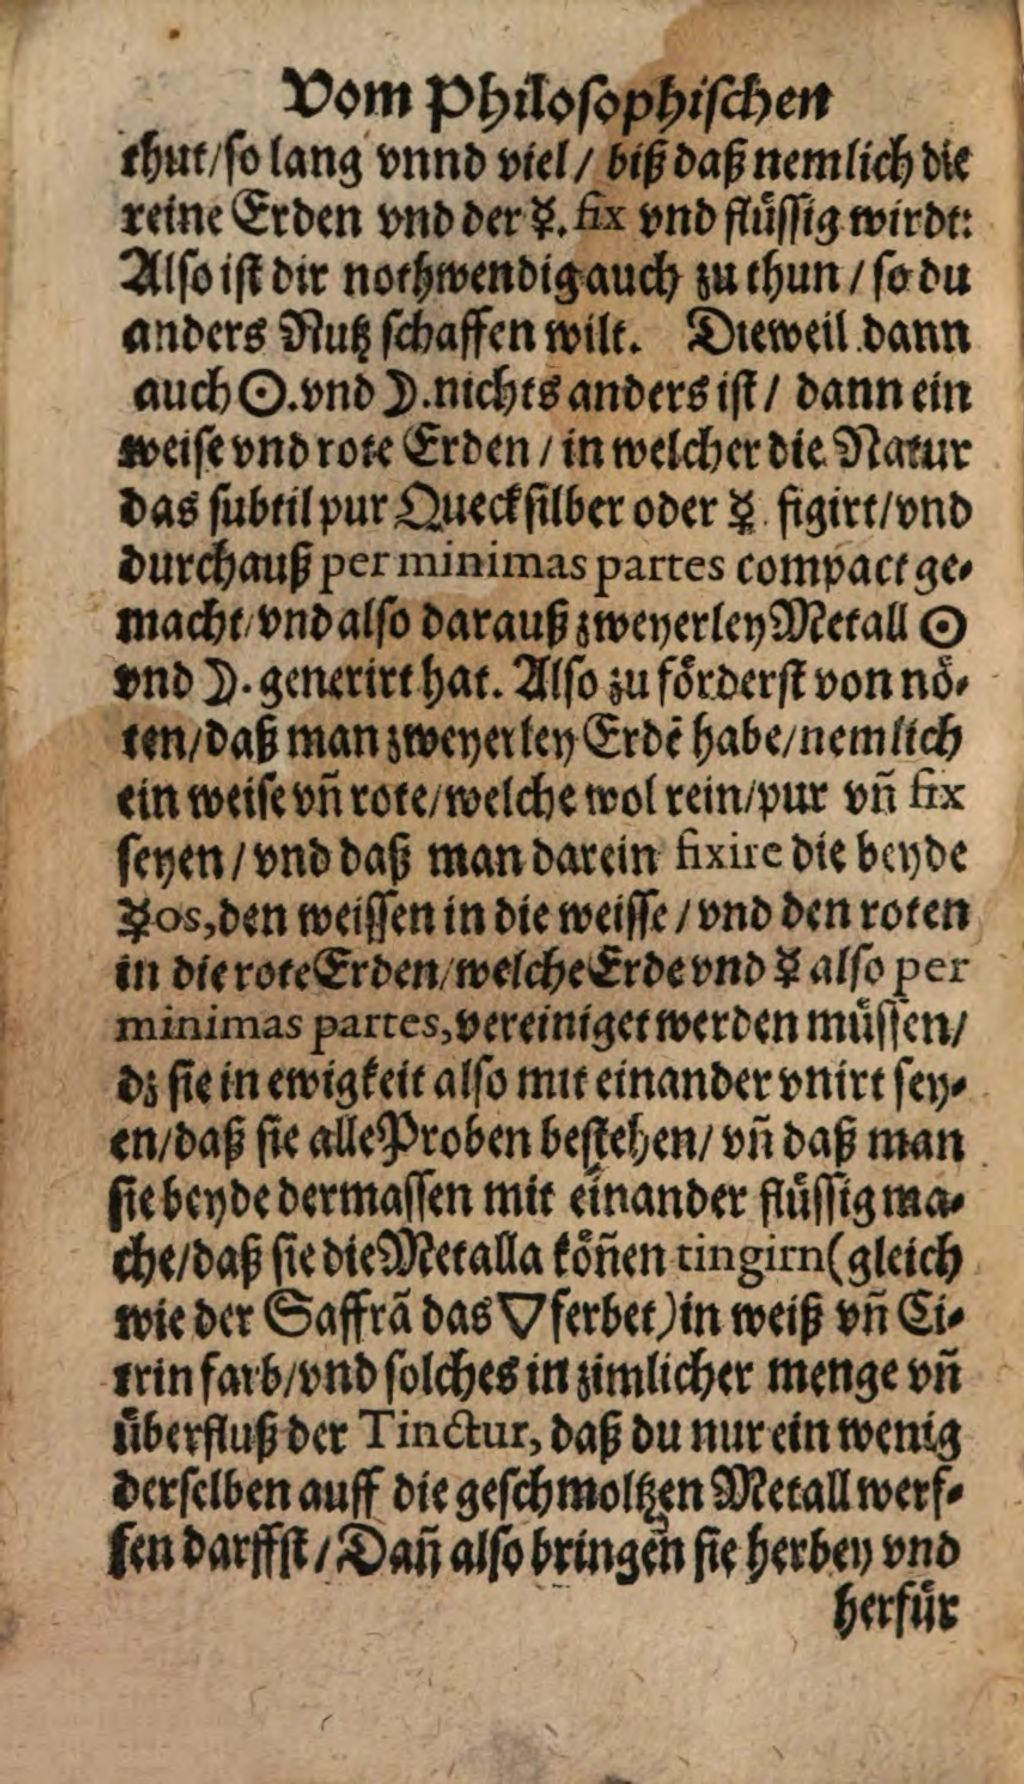 Vom Philosophischen
thut/so lang vnnd viel/ biß daß nemlich die
reine Erden vnd der ☿. fix vnd flüssig wirdt:
Also ist dir nothwendig auch zu thun / so du
anders Nutz schaffen wilt. Dieweil dann
auch ☉. vnd ☽. nichts anders ist / dann ein
weise vnd rote Erden / in welcher die Natur
das subtil pur Quecksilber oder ☿. figirt/vnd
durchauß per minimas partes compact ge-
macht/vnd also darauß zweyerley Metall ☉
vnd ☽. generirt hat. Also zu förderst von nö-
ten/daß man zweyerley Erdē habe/nemlich
ein weise vñ rote/welche wol rein/pur vñ fix
seyen / vnd daß man darein fixire die beyde
☿os, den weissen in die weisse / vnd den roten
in die rote Erden/welche Erde vnd ☿ also per
minimas partes, vereiniget werden müssen/
dz sie in ewigkeit also mit einander vnirt sey-
en/daß sie alle Proben bestehen/ vñ daß man
sie beyde dermassen mit einander flüssig ma-
che/daß sie die Metalla köñen tingirn (gleich
wie der Saffrā das ▽ ferbet) in weiß vñ Ci-
trin farb/vnd solches in zimlicher menge vñ
überfluß der Tinctur, daß du nur ein wenig
derselben auff die geschmoltzen Metall werf-
fen darffst / Dañ also bringen sie herbey vnd
herfür